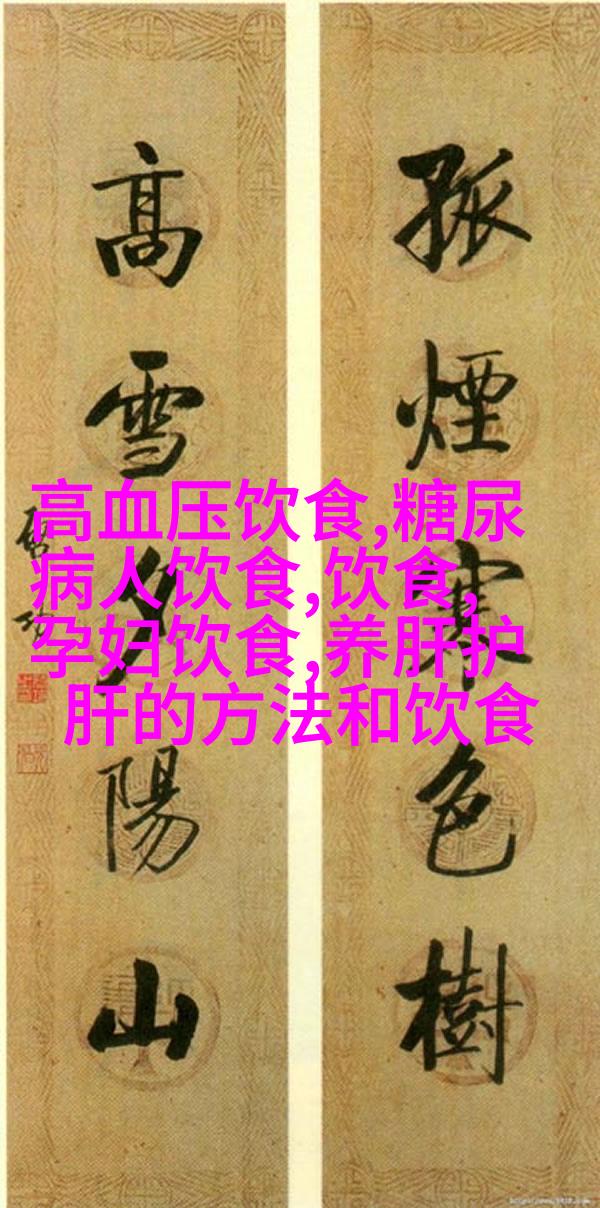 孤煙寒色樹
高雪夕陽山
啓功
高血压饮食,糖尿
病人饮食,饮食,
孕妇饮食,养肝护
肝的方法和饮食